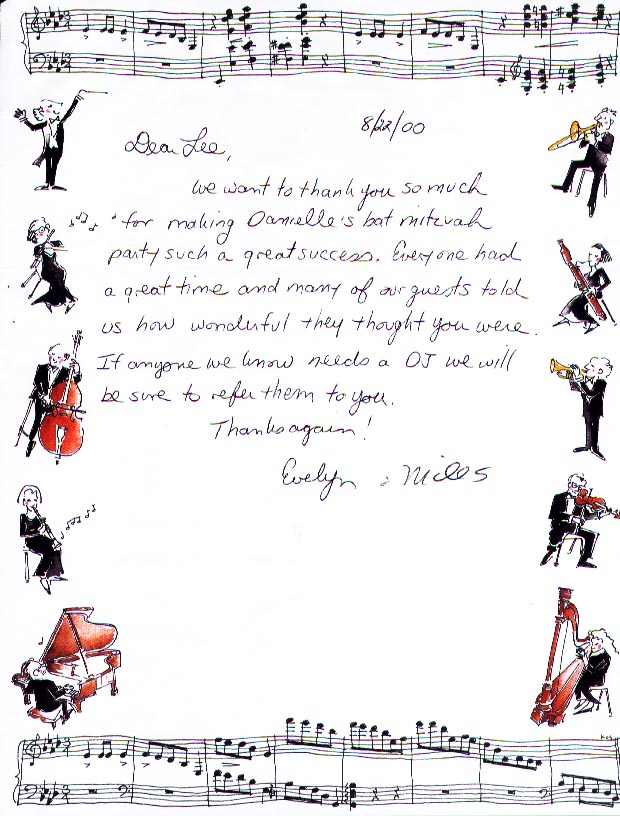 8/22/00
Dear Lee,
We want to thank you so much
for making Danielle's bat mitzvah
party such a great success. Everyone had
a great time and many of our guests told
us how wonderful they thought you were.
If anyone we know needs a DJ we will
be sure to refer them to you.
Thanks again!
Evelyn & Miles